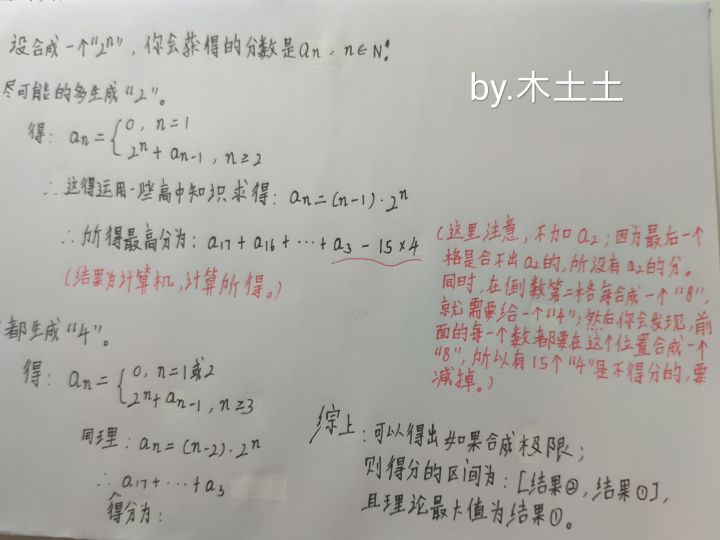 设合成一个“2ⁿ”，你会获得的分数是aₙ，n∈N₊*
by.木土土
尽可能的多生成“2”。
得：aₙ={0，n=1
2ⁿ+aₙ₋₁，n≥2
∴这得运用一些高中知识求得：aₙ=(n-1)·2ⁿ
∴所得最高分为：a₁₇+a₁₆+…+a₃-15×4
(结果为计算机，计算所得。)
(这里注意，不加a₂；因为最后一个
格是合不出a₂的，所没有a₂的分。
同时，在倒数第二格每合成一个“8”，
就需要给一个“4”；然后你会发现，前
面的每一个数都要在这个位置合成一个
“8”，所以有15个“4”是不得分的，要
减掉。)
都生成“4”。
得：aₙ={0，n=1或2
2ⁿ+aₙ₋₁，n≥3
同理：aₙ=(n-2)·2ⁿ
∴a₁₇+…+a₃
得分为：
综上：可以得出如果合成极限；
则得分的区间为：[结果②，结果①]，
且理论最大值为结果①。